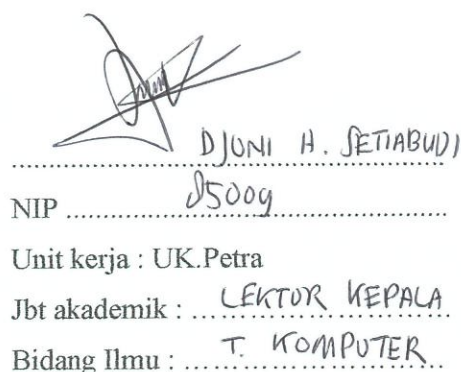 DJUNI H. SETIABUDI
NIP 85009
Unit kerja : UK.Petra
Jbt akademik : LEKTOR KEPALA
Bidang Ilmu : T. KOMPUTER